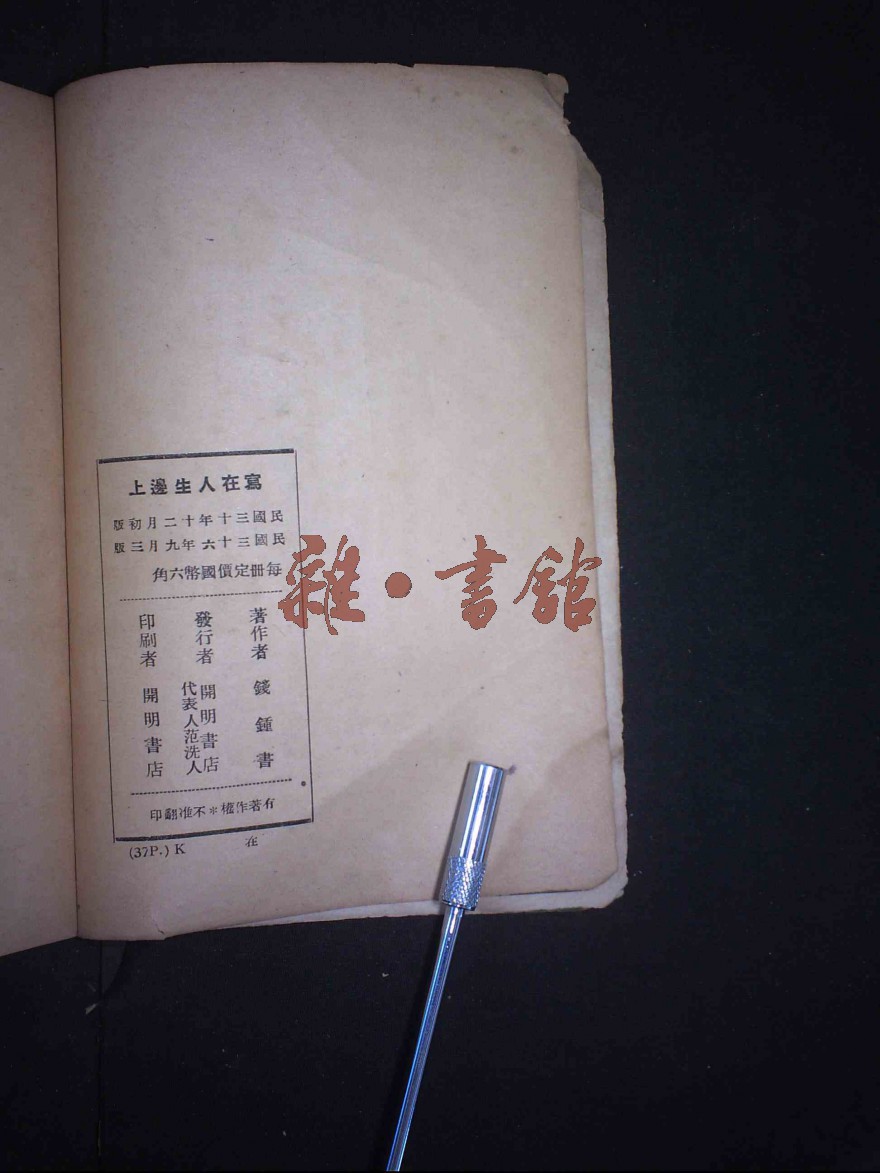 寫在人生邊上
民國三十年十二月初版
民國三十六年九月三版
每冊定價國幣六角
著作者 錢鍾書
發行者 開明書店
代表人范洗人
印刷者 開明書店
有著作權＊不准翻印
(37P.) K
在
雜•書館